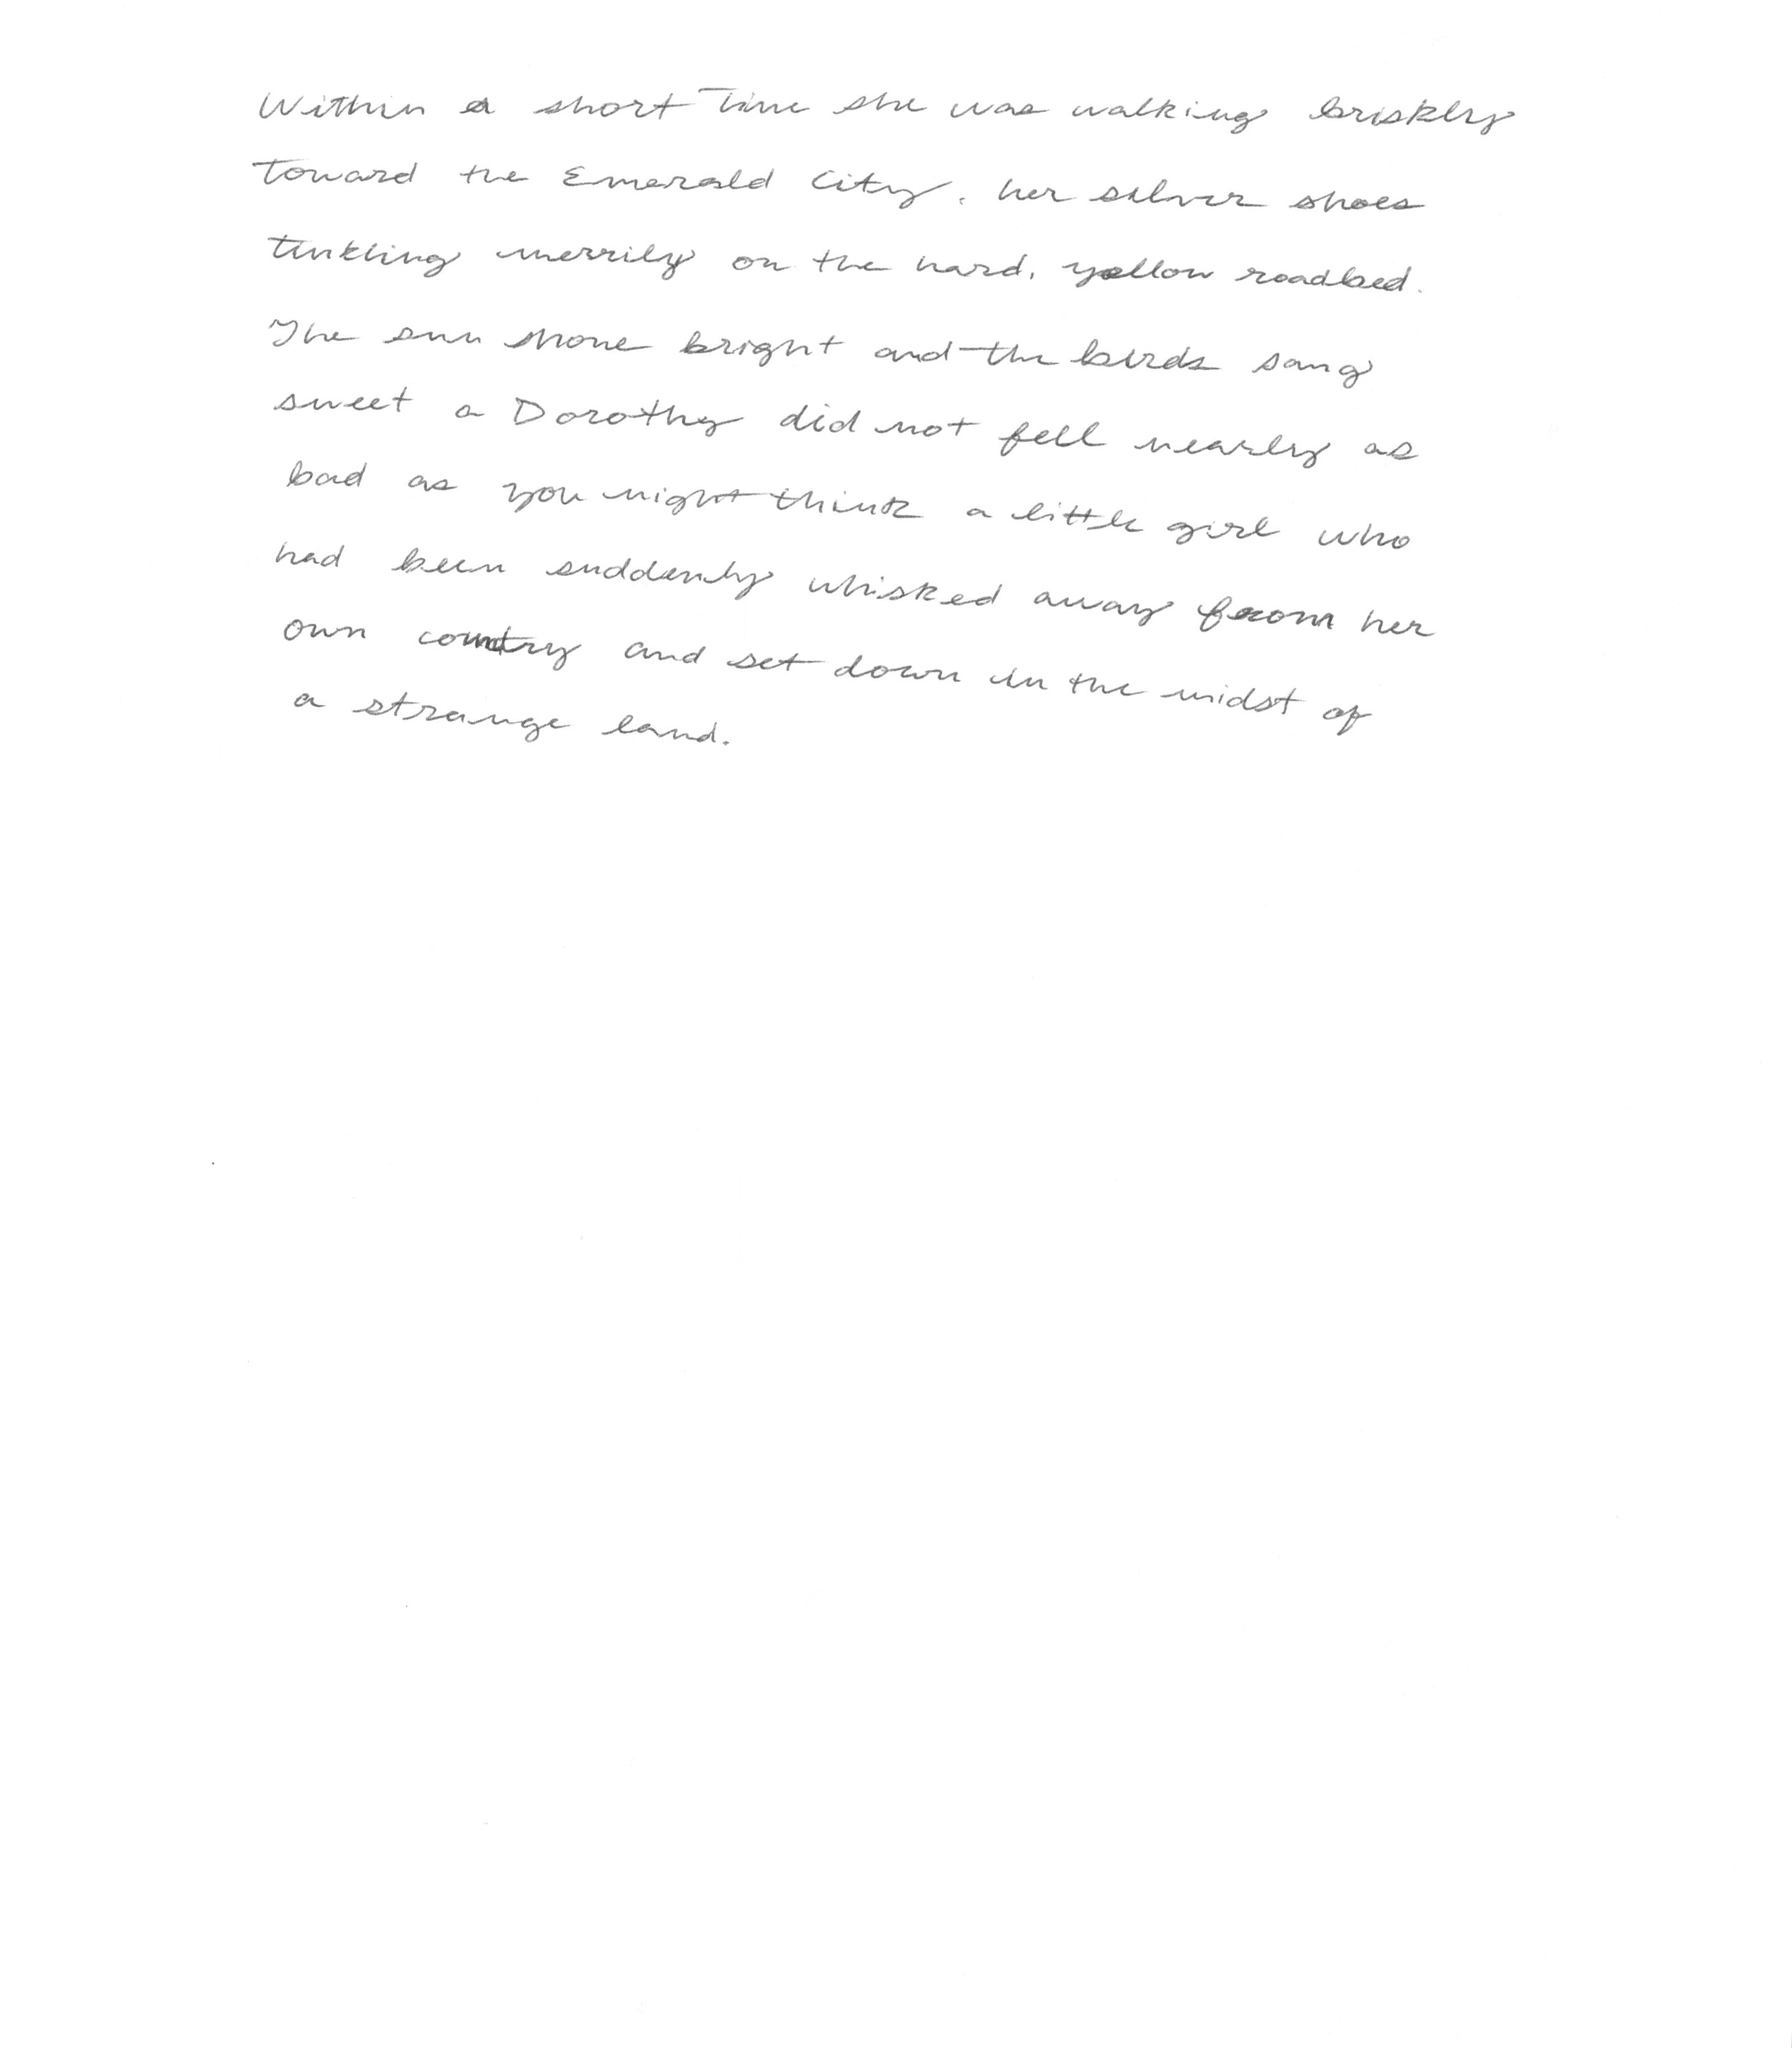 Within a short time she was walking briskly
toward the Emerald City, her silver shoes
tinkling merrily on the hard, yellow roadbed.
The sun shone bright and the birds sang
sweet a Dorothy did not fell nearly as
bad as you might think a little girl who
had been suddenly whisked away from her
own country and set down in the midst of
a strange land.